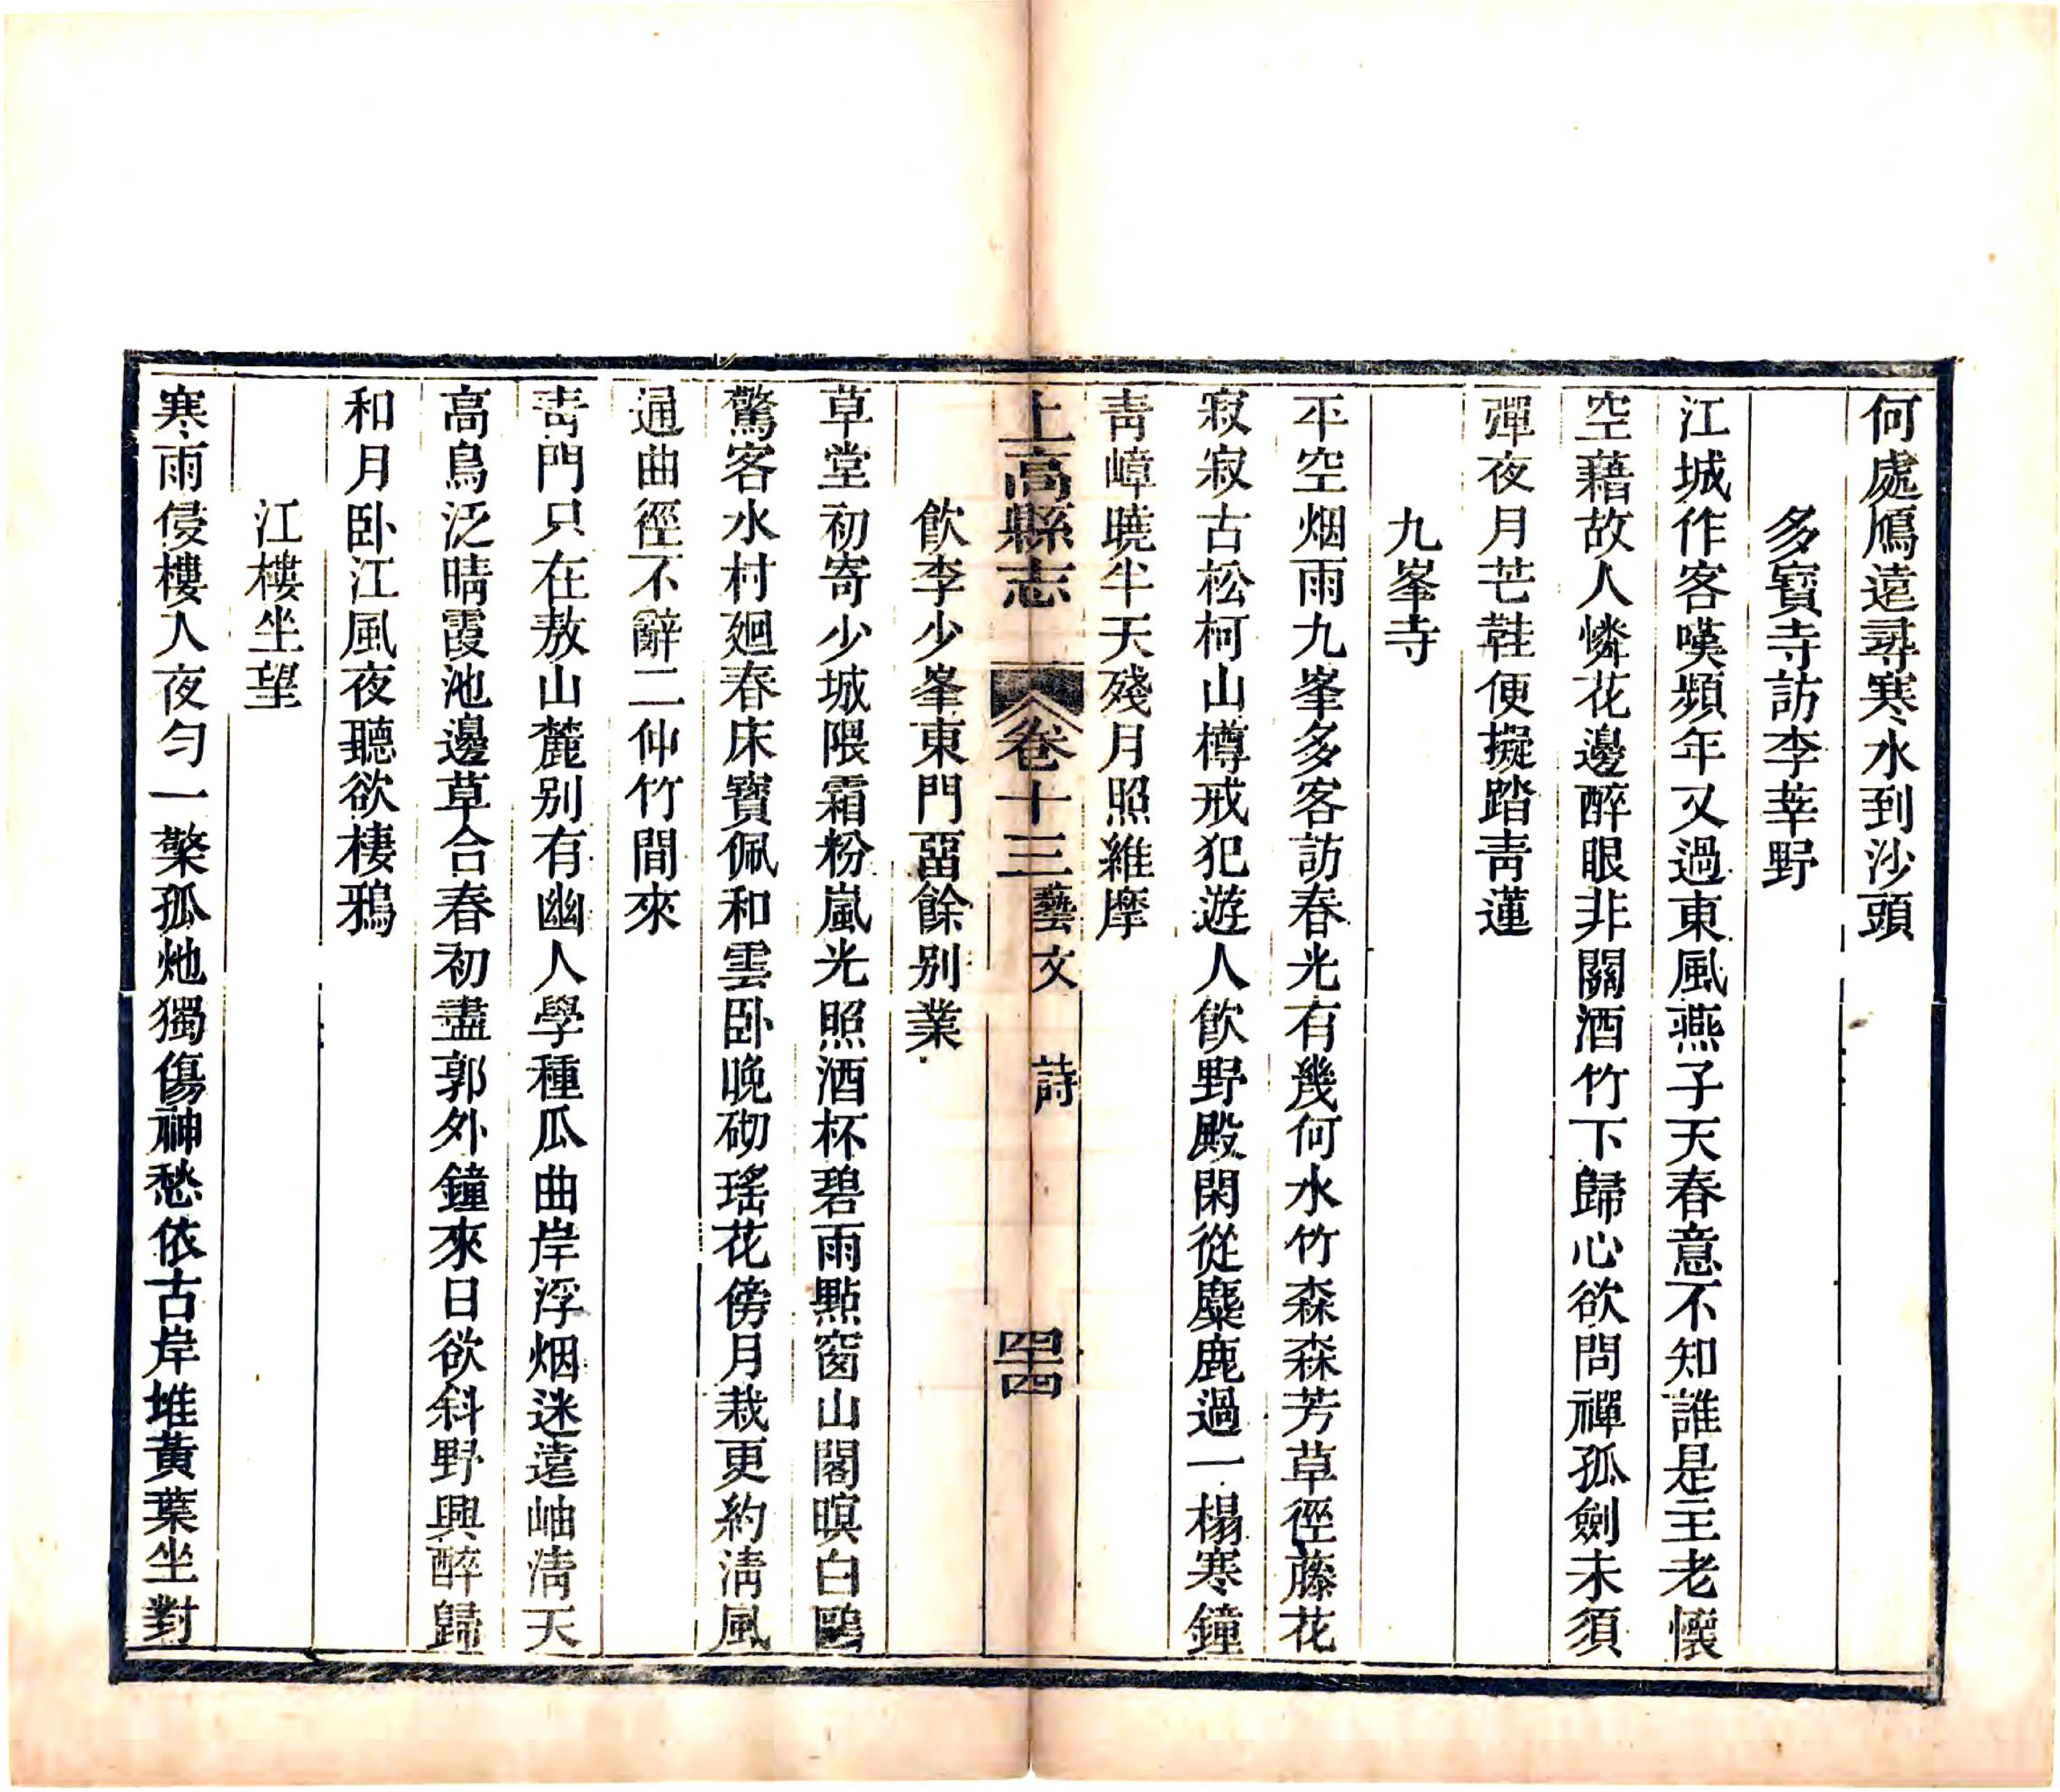 何處鴈遠尋寒水到沙頭
多寶寺訪李莘野
江城作客嘆頻年又過東風燕子天春意不知誰是主老懷
空藉故人憐花邊醉眼非關酒竹下歸心欲問禪孤劍未須
彈夜月芒鞋便擬踏青蓮
九峯寺
平空烟雨九峯多客訪春光有幾何水竹森森芳草徑藤花
寂寂古松柯山樽戒犯遊人飲野殿閑從麋鹿過一榻寒鐘
青嶂曉半天殘月照維摩
上高縣志 卷十三 藝文 詩 四十四
飲李少峯東門畱餘别業
草堂初寄少城隈霜粉嵐光照酒杯碧雨點窗山閣暝白鷗
驚客水村廻春床寶佩和雲卧晚砌瑤花傍月栽更約淸風
通曲徑不辭二仲竹間來
青門只在敖山麓别有幽人學種瓜曲岸浮烟迷遠岫淸天
高鳥泛晴霞池邊草合春初盡郭外鐘來日欲斜野興醉歸
和月卧江風夜聽欲棲鴉
江樓坐望
寒雨侵樓人夜勻一檠孤灺獨傷神愁依古岸堆黃葉坐對